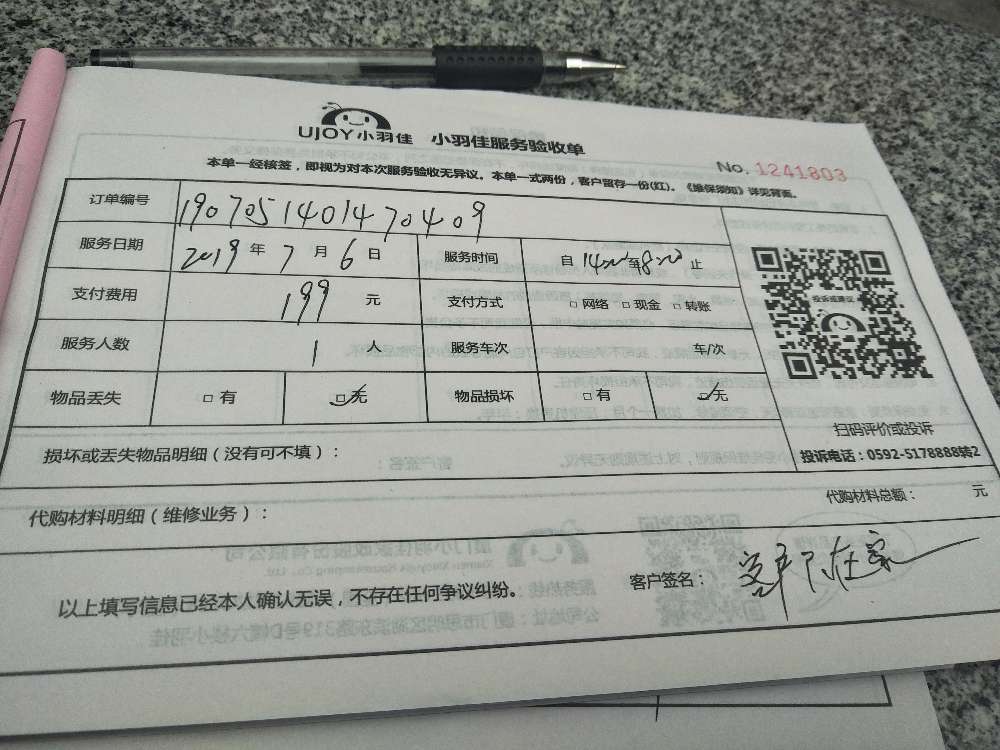 UJOY小羽佳 小羽佳服务验收单
No. 1241803
本单一经核签，即视为对本次服务验收无异议。本单一式两份，客户留存一份(红)。《维保须知》详见背面。
订单编号 1907051401470409
服务日期 2019 年 7 月 6 日 服务时间 自 14:00 至 18:00 止
支付费用 199 元 支付方式 □ 网络 □ 现金 □ 转账
投诉或建议
服务人数 1 人 服务车次 车/次
物品丢失 □ 有 ☑ 无 物品损坏 □ 有 ☑ 无
扫码评价或投诉
投诉电话：0592-5178888转2
损坏或丢失物品明细（没有可不填）：
代购材料明细（维修业务）： 代购材料总额： 元
以上填写信息已经本人确认无误，不存在任何争议纠纷。 客户签名： 不在家